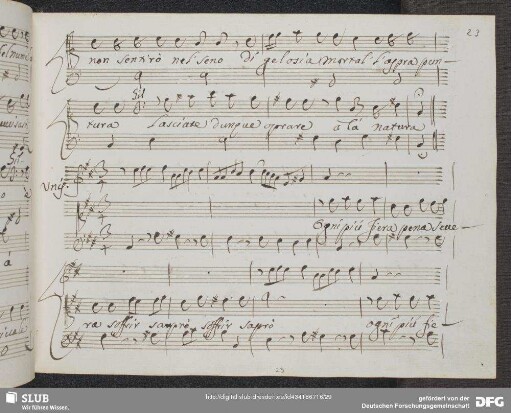 23
non sentirò nel seno Di gelosia mortal l'aspra pun-
tura Lasciate dunque oprare à la natura
Unis:
Ogni più fiera pena seue-
ra soffrir saprò soffrir saprò ogni più fie-
SLUB
Wir führen Wissen.
http://digital.slub-dresden.de/id434186716/29
gefördert von der
Deutschen Forschungsgemeinschaft
DFG